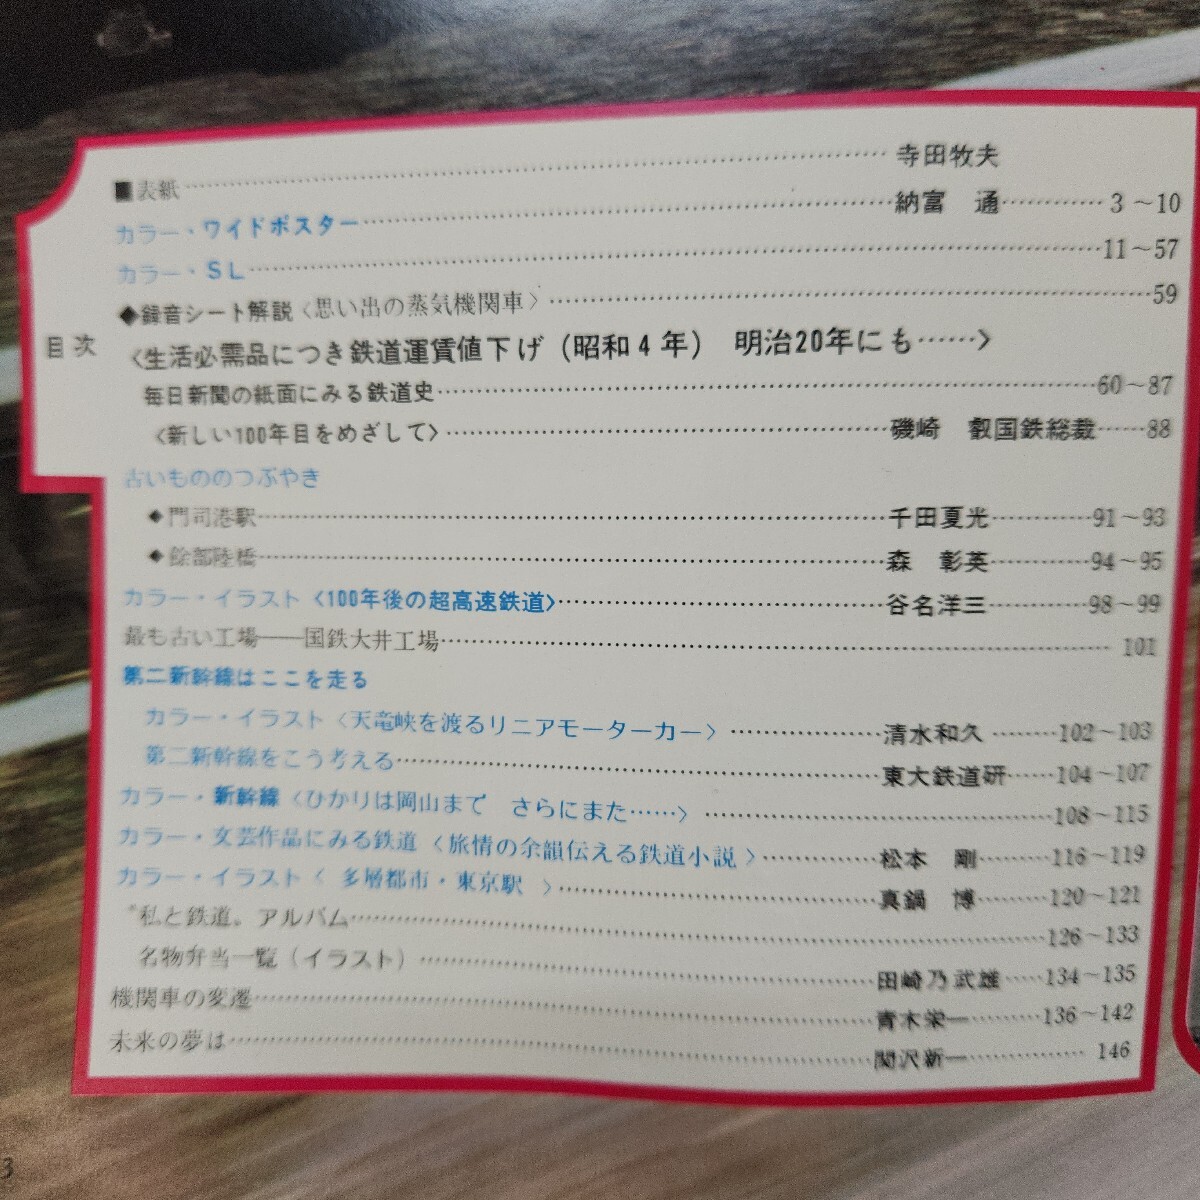 目次
■表紙……寺田牧夫
カラー・ワイドポスター……納富　通……3～10
カラー・SL……11～57
◆録音シート解説〈思い出の蒸気機関車〉……59
〈生活必需品につき鉄道運賃値下げ（昭和4年）　明治20年にも……〉
毎日新聞の紙面にみる鉄道史……60～87
〈新しい100年目をめざして〉……磯崎　叡国鉄総裁……88
古いもののつぶやき
◆門司港駅……千田夏光……91～93
◆餘部陸橋……森　彰英……94～95
カラー・イラスト〈100年後の超高速鉄道〉……谷名洋三……98～99
最も古い工場――国鉄大井工場……101
第二新幹線はここを走る
カラー・イラスト〈天竜峡を渡るリニアモーターカー〉……清水和久……102～103
第二新幹線をこう考える……東大鉄道研……104～107
カラー・新幹線〈ひかりは岡山まで　さらにまた……〉……108～115
カラー・文芸作品にみる鉄道〈旅情の余韻伝える鉄道小説〉……松本　剛……116～119
カラー・イラスト〈多層都市・東京駅〉……真鍋　博……120～121
“私と鉄道„アルバム……126～133
名物弁当一覧（イラスト）……田崎乃武雄……134～135
機関車の変遷……青木栄一……136～142
未来の夢は……関沢新一……146
3